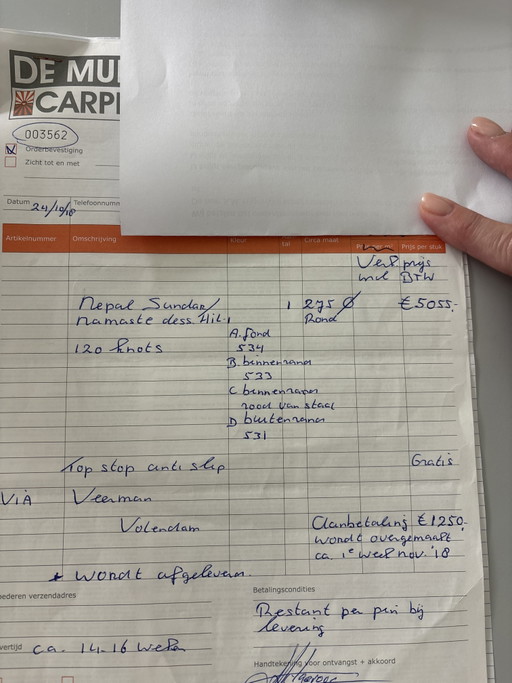 DE MU
CARP
003562
Orderbevestiging
Zicht tot en met
Datum 24/10/18 Telefoonnumm
Artikelnummer Omschrijving Kleur tal Circa maat Prijs per stuk
Verk prijs
incl BTW
Nepal Sundar 1 275 Ø € 5055,-
namaste dess. Hil. Rond
A. fond
120 knots 534
B. binnenrand
533
C binnenrand
rood van staal
D buitenrand
531
Top stop anti slip Gratis
VIA Veerman
Volendam Aanbetaling € 1250,-
wordt overgemaakt
ca. 1e week nov. '18
+ wordt afgeleverd.
ederen verzendadres Betalingscondities
Restant per pin bij
levering
vertijd ca. 14-16 weken
Handtekening voor ontvangst + akkoord